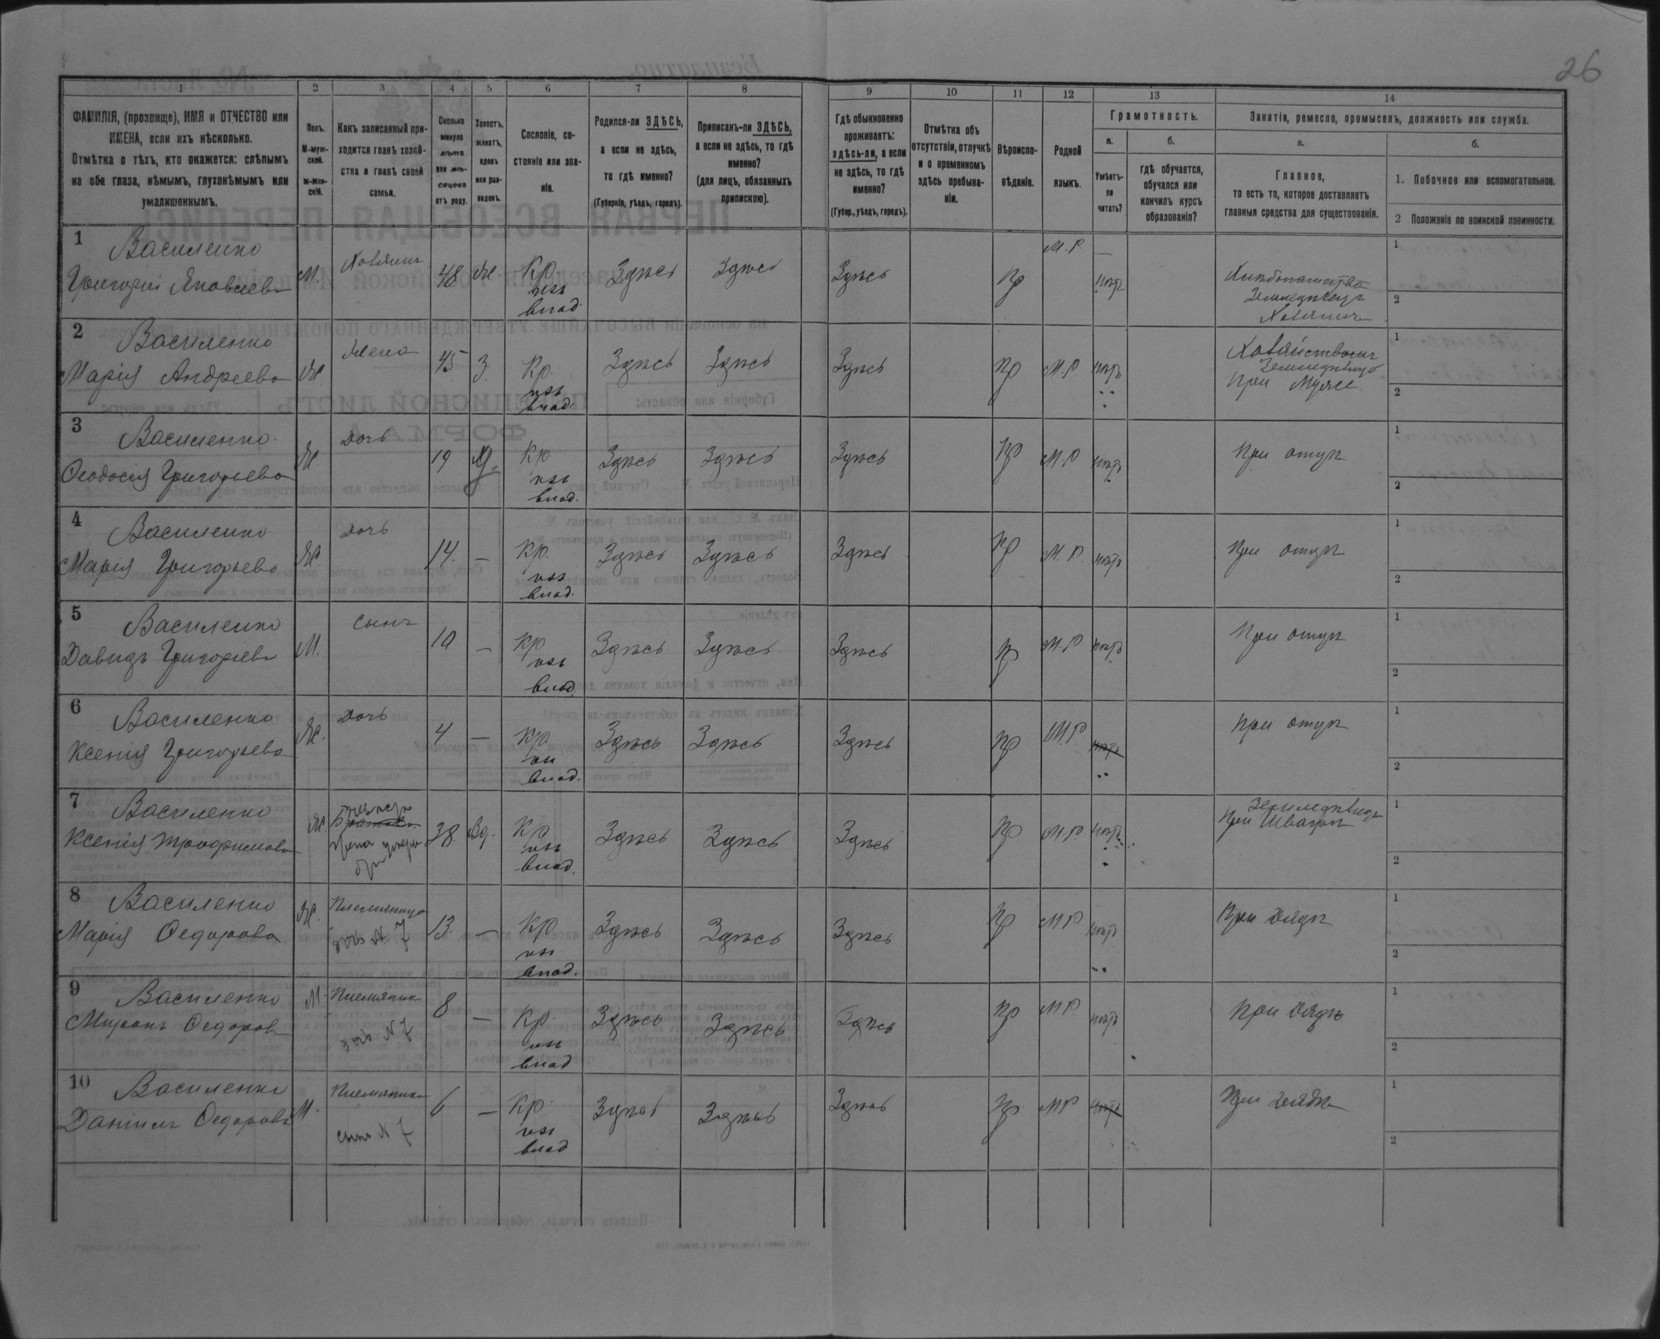 26
1 2 3 4 5 6 7 8 9 10 11 12 13 14
ФАМИЛІЯ, (прозвище), ИМЯ и ОТЧЕСТВО или
ИМЕНА, если ихъ нѣсколько.
Отмѣтка о тѣхъ, кто окажется: слѣпымъ
на оба глаза, нѣмымъ, глухонѣмымъ или
умалишеннымъ.
Полъ.
М-муж-
ской.
Ж-жен-
скій.
Какъ записанный при-
ходится главѣ хозяй-
ства и главѣ своей
семьи.
Сколько
минуло
лѣтъ
или мѣ-
сяцевъ
отъ роду.
Холостъ,
женатъ,
вдовъ
или раз-
веденъ.
Сословіе, со-
стояніе или зва-
ніе.
Родился-ли ЗДѢСЬ,
а если не здѣсь,
то гдѣ именно?
(Губернія, уѣздъ, городъ).
Приписанъ-ли ЗДѢСЬ,
а если не здѣсь, то гдѣ
именно?
(для лицъ, обязанныхъ
припискою).
Гдѣ обыкновенно
проживаетъ:
здѣсь-ли, а если
не здѣсь, то гдѣ
именно?
(Губер., уѣздъ, городъ).
Отмѣтка объ
отсутствіи, отлучкѣ
и о временномъ
здѣсь пребыва-
ніи.
Вѣроиспо-
вѣданіе.
Родной
языкъ.
Грамотность.
а.
Умѣетъ-
ли
читать?
б.
гдѣ обучается,
обучался или
кончилъ курсъ
образованія?
Занятія, ремесло, промыселъ, должность или служба.
а.
Главное,
то есть то, которое доставляетъ
главныя средства для существованія.
б.
1. Побочное или вспомогательное.
2 Положеніе по воинской повинности.
1
Василенко
Григорій Яковлевъ
М.
Хозяинъ
48
Же.
Кр.
влад.
Здѣсь Здѣсь Здѣсь
Пр
М.Р.
нѣтъ
Хлѣбопашество
Земледѣлецъ
Хозяинъ
1
2
2
Василенко
Марія Андреева
Же
Жена
45
З.
Кр.
влад.
Здѣсь Здѣсь Здѣсь
Пр
М.Р
нѣтъ
При Мужѣ
1
2
3
Василенко
Ѳеодосія Григорьева
Же
Дочь
19
Д.
Кр
влад.
Здѣсь Здѣсь Здѣсь
Пр
М.Р
нѣтъ
При отцѣ
1
2
4
Василенко
Марія Григорьева
Же
Дочь
14. —
Кр.
влад.
Здѣсь Здѣсь Здѣсь
Пр
М.Р.
нѣтъ
При отцѣ
1
2
5
Василенко
Давидъ Григорьевъ
М.
Сынъ
10 —
Кр
влад
Здѣсь Здѣсь Здѣсь
Пр
М.Р
нѣтъ
При отцѣ
1
2
6
Василенко
Ксенія Григорьева
Же.
Дочь
4 —
Кр
влад.
Здѣсь Здѣсь Здѣсь
Пр
М.Р
нѣтъ
При отцѣ
1
2
7
Василенко
Ксенія Трофимова
Же
38.
Вд.
Кр
влад.
Здѣсь Здѣсь Здѣсь
Пр
М.Р
нѣтъ
При Швагрѣ
1
2
8
Василенко
Марія Ѳедорова
Же.
Племянница
дочь N 7
13. —
Кр.
влад.
Здѣсь Здѣсь Здѣсь
Пр
М.Р
нѣтъ
При дядѣ
1
2
9
Василенко
Миронъ Ѳедоровъ
М.
Племяникъ
N 7
8 —
Кр.
влад
Здѣсь Здѣсь Здѣсь
Пр
М.Р.
нѣтъ
При дядѣ
1
2
10
Василенко
Даніилъ Ѳедоровъ
М.
Племяникъ
сынъ N 7
6 —
Кр.
влад
Здѣсь Здѣсь Здѣсь
Пр.
М.Р
нѣтъ
При дядѣ
1
2